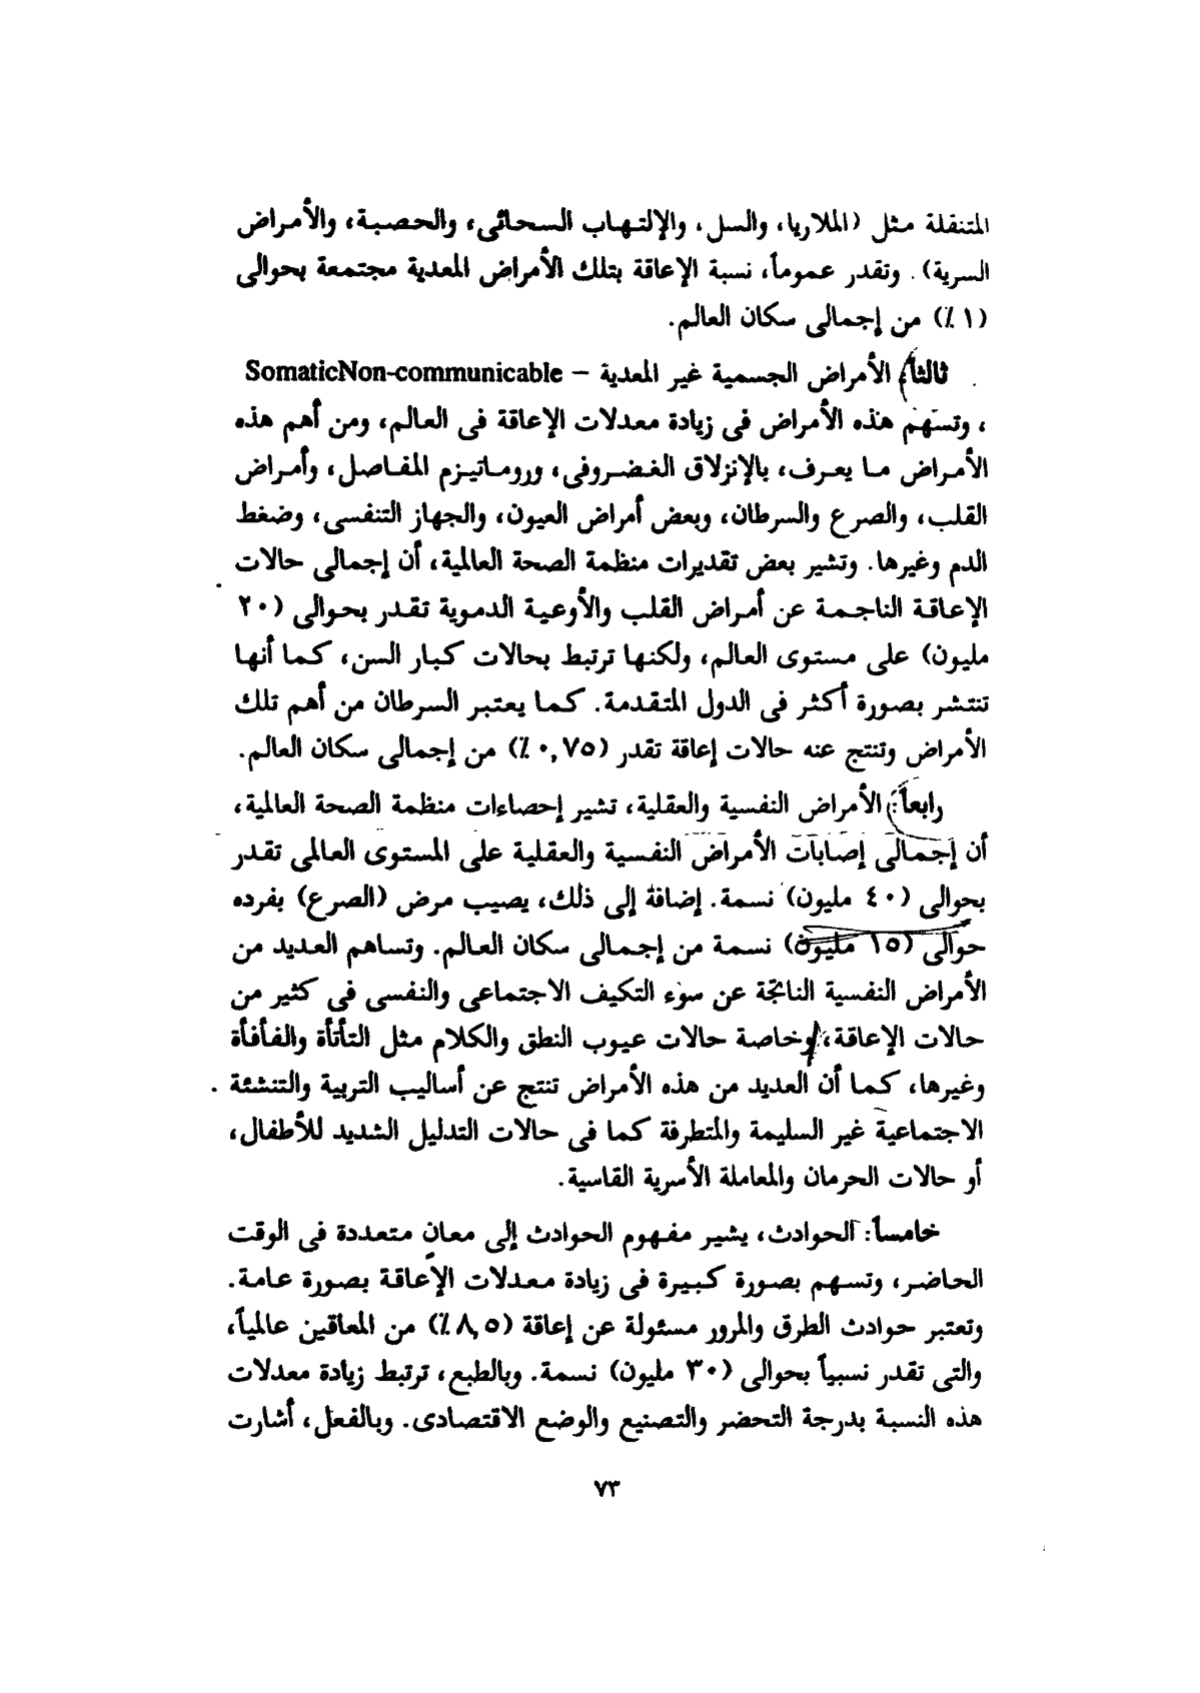 المتنقلة مثل (الملاريا، والسل، والإلتهاب السحائى، والحصبة، والأمراض
السرية). وتقدر عموماً، نسبة الإعاقة بتلك الأمراض المعدية مجتمعة بحوالى
(١٪) من إجمالى سكان العالم.
ثالثاً: الأمراض الجسمية غير المعدية – SomaticNon-communicable
، وتسهم هذه الأمراض فى زيادة معدلات الإعاقة فى العالم، ومن أهم هذه
الأمراض ما يعرف، بالإنزلاق الغضروفى، وروماتيزم المفاصل، وأمراض
القلب، والصرع والسرطان، وبعض أمراض العيون، والجهاز التنفسى، وضغط
الدم وغيرها. وتشير بعض تقديرات منظمة الصحة العالمية، أن إجمالى حالات
الإعاقة الناجمة عن أمراض القلب والأوعية الدموية تقدر بحوالى (٢٠
مليون) على مستوى العالم، ولكنها ترتبط بحالات كبار السن، كما أنها
تنتشر بصورة أكثر فى الدول المتقدمة. كما يعتبر السرطان من أهم تلك
الأمراض وتنتج عنه حالات إعاقة تقدر (٠,٧٥٪) من إجمالى سكان العالم.
رابعاً: الأمراض النفسية والعقلية، تشير إحصاءات منظمة الصحة العالمية،
أن إجمالى إصابات الأمراض النفسية والعقلية على المستوى العالمى تقدر
بحوالى (٤٠ مليون) نسمة. إضافة إلى ذلك، يصيب مرض (الصرع) بفرده
حوالى (١٥ مليون) نسمة من إجمالى سكان العالم. وتساهم العديد من
الأمراض النفسية الناتجة عن سوء التكيف الاجتماعى والنفسى فى كثير من
حالات الإعاقة، وخاصة حالات عيوب النطق والكلام مثل التأتأة والفأفأة
وغيرها، كما أن العديد من هذه الأمراض تنتج عن أساليب التربية والتنشئة
الاجتماعية غير السليمة والمتطرفة كما فى حالات التدليل الشديد للأطفال،
أو حالات الحرمان والمعاملة الأسرية القاسية.
خامساً: الحوادث، يشير مفهوم الحوادث إلى معانٍ متعددة فى الوقت
الحاضر، وتسهم بصورة كبيرة فى زيادة معدلات الإعاقة بصورة عامة.
وتعتبر حوادث الطرق والمرور مسئولة عن إعاقة (٨,٥٪) من المعاقين عالمياً،
والتى تقدر نسبياً بحوالى (٣٠ مليون) نسمة. وبالطبع، ترتبط زيادة معدلات
هذه النسبة بدرجة التحضر والتصنيع والوضع الاقتصادى. وبالفعل، أشارت
٧٣